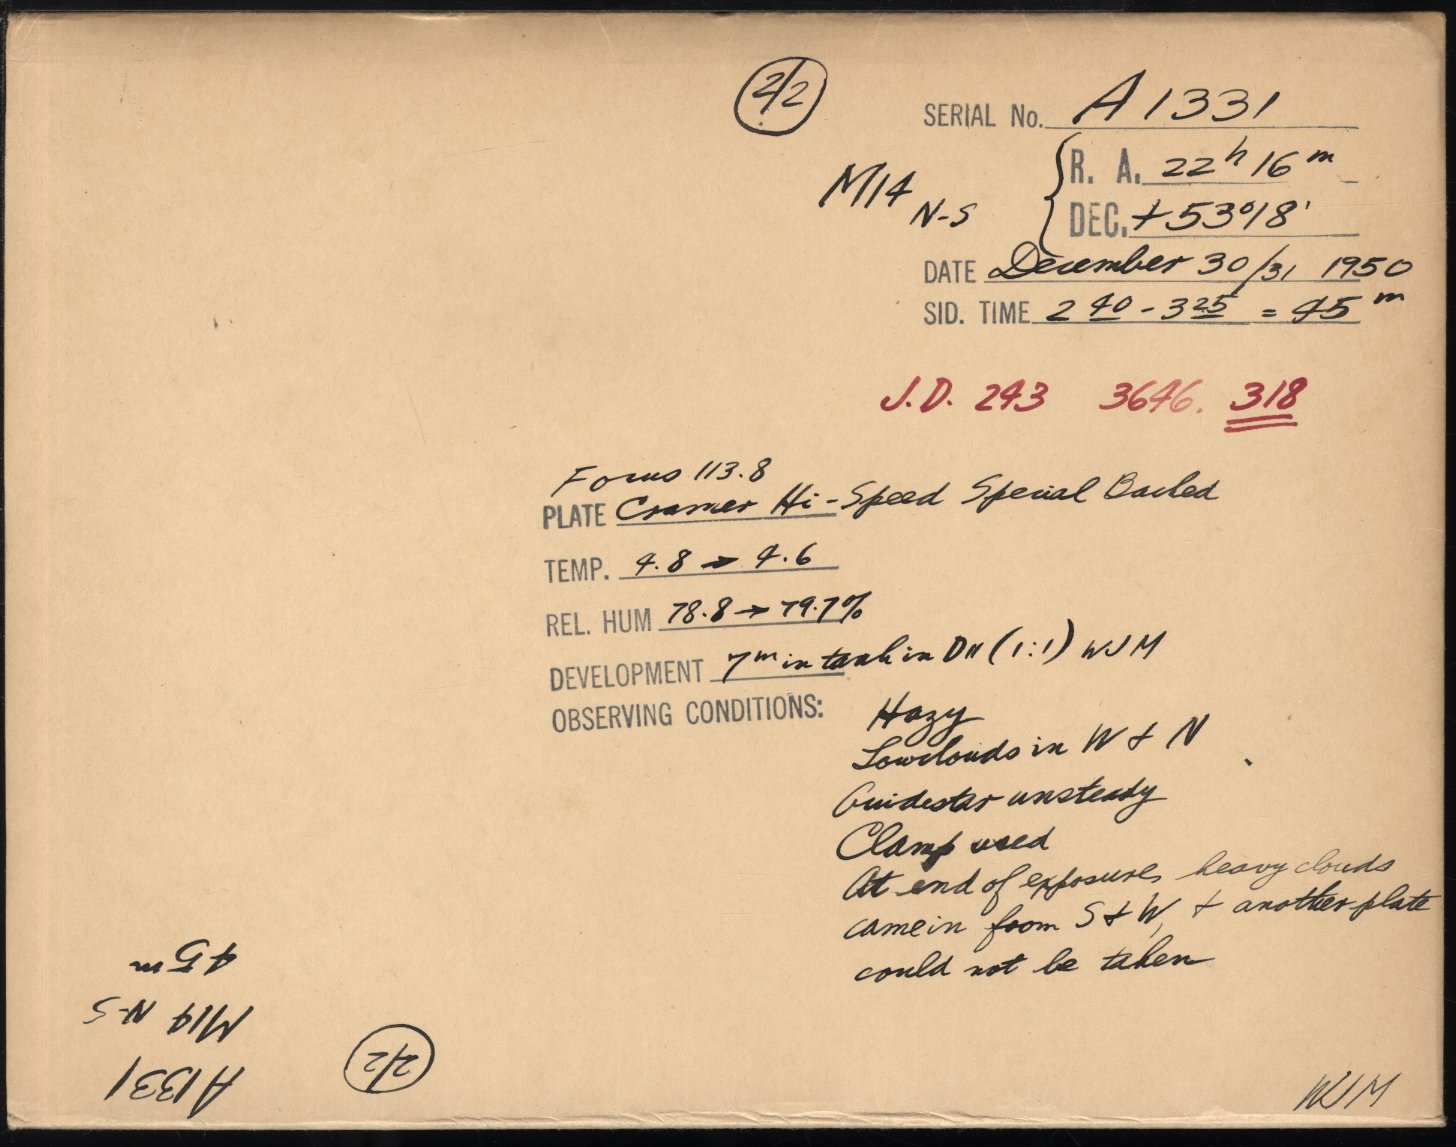 2/2
SERIAL No. A1331
M14 N-S
R. A. 22h 16m
DEC. +53°18'
DATE December 30/31 1950
SID. TIME 2 40 - 3 25 = 45m
J.D. 243 3646. 318
Focus 113.8
PLATE Cramer Hi-Speed Special Backed
TEMP. 4.8 → 4.6
REL. HUM 78.8 → 79.7%
DEVELOPMENT 7m in tank in D11 (1:1) WJM
OBSERVING CONDITIONS: Hazy
Low clouds in W & N
Guidestar unsteady
Clamp used
At end of exposure, heavy clouds
came in from S & W, & another plate
could not be taken
WJM
A1331
M14 N-S
45m
2/2